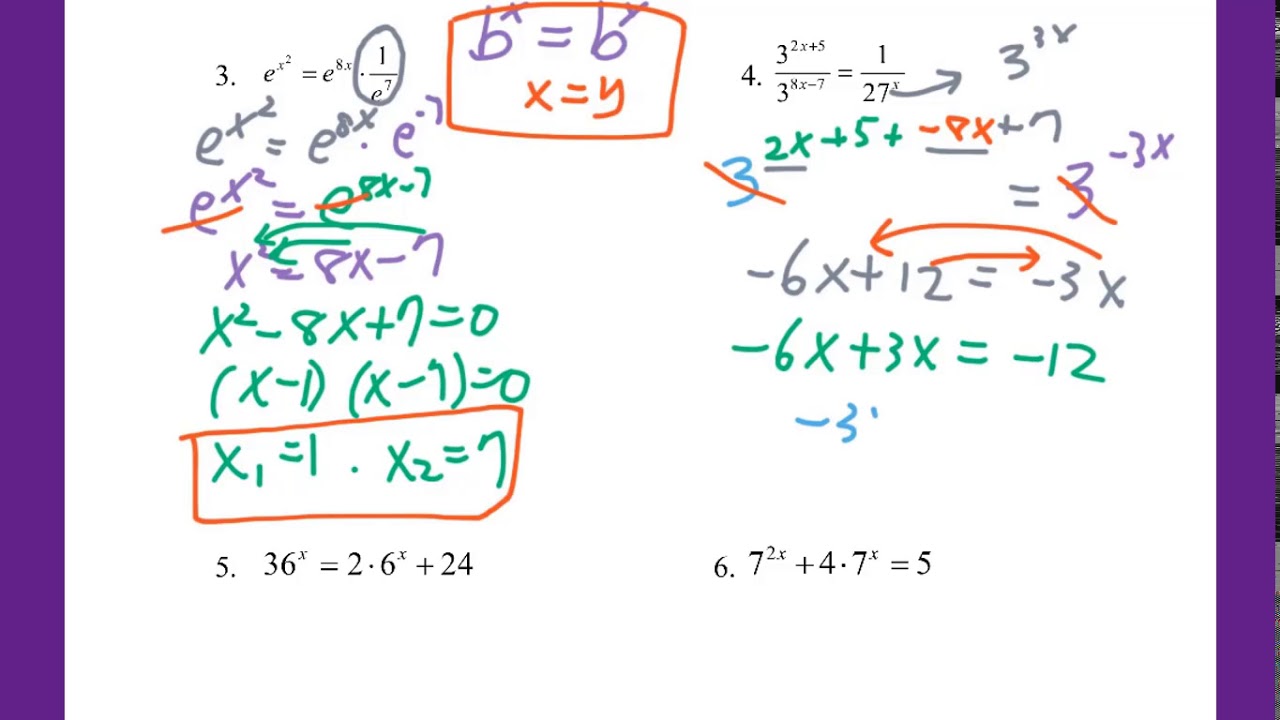 b^x = b^y
x = y
3. e^{x^2} = e^{8x} · 1/e^7
e^{x^2} = e^{8x} · e^{-7}
e^{x^2} = e^{8x-7}
x^2 = 8x - 7
x^2 - 8x + 7 = 0
(x - 1) (x - 7) = 0
x_1 = 1 . x_2 = 7
4. 3^{2x+5}/3^{8x-7} = 1/27^x → 3^{3x}
3^{2x+5+-8x+7} = 3^{-3x}
-6x + 12 = -3x
-6x + 3x = -12
-3
5. 36^x = 2 · 6^x + 24
6. 7^{2x} + 4 · 7^x = 5